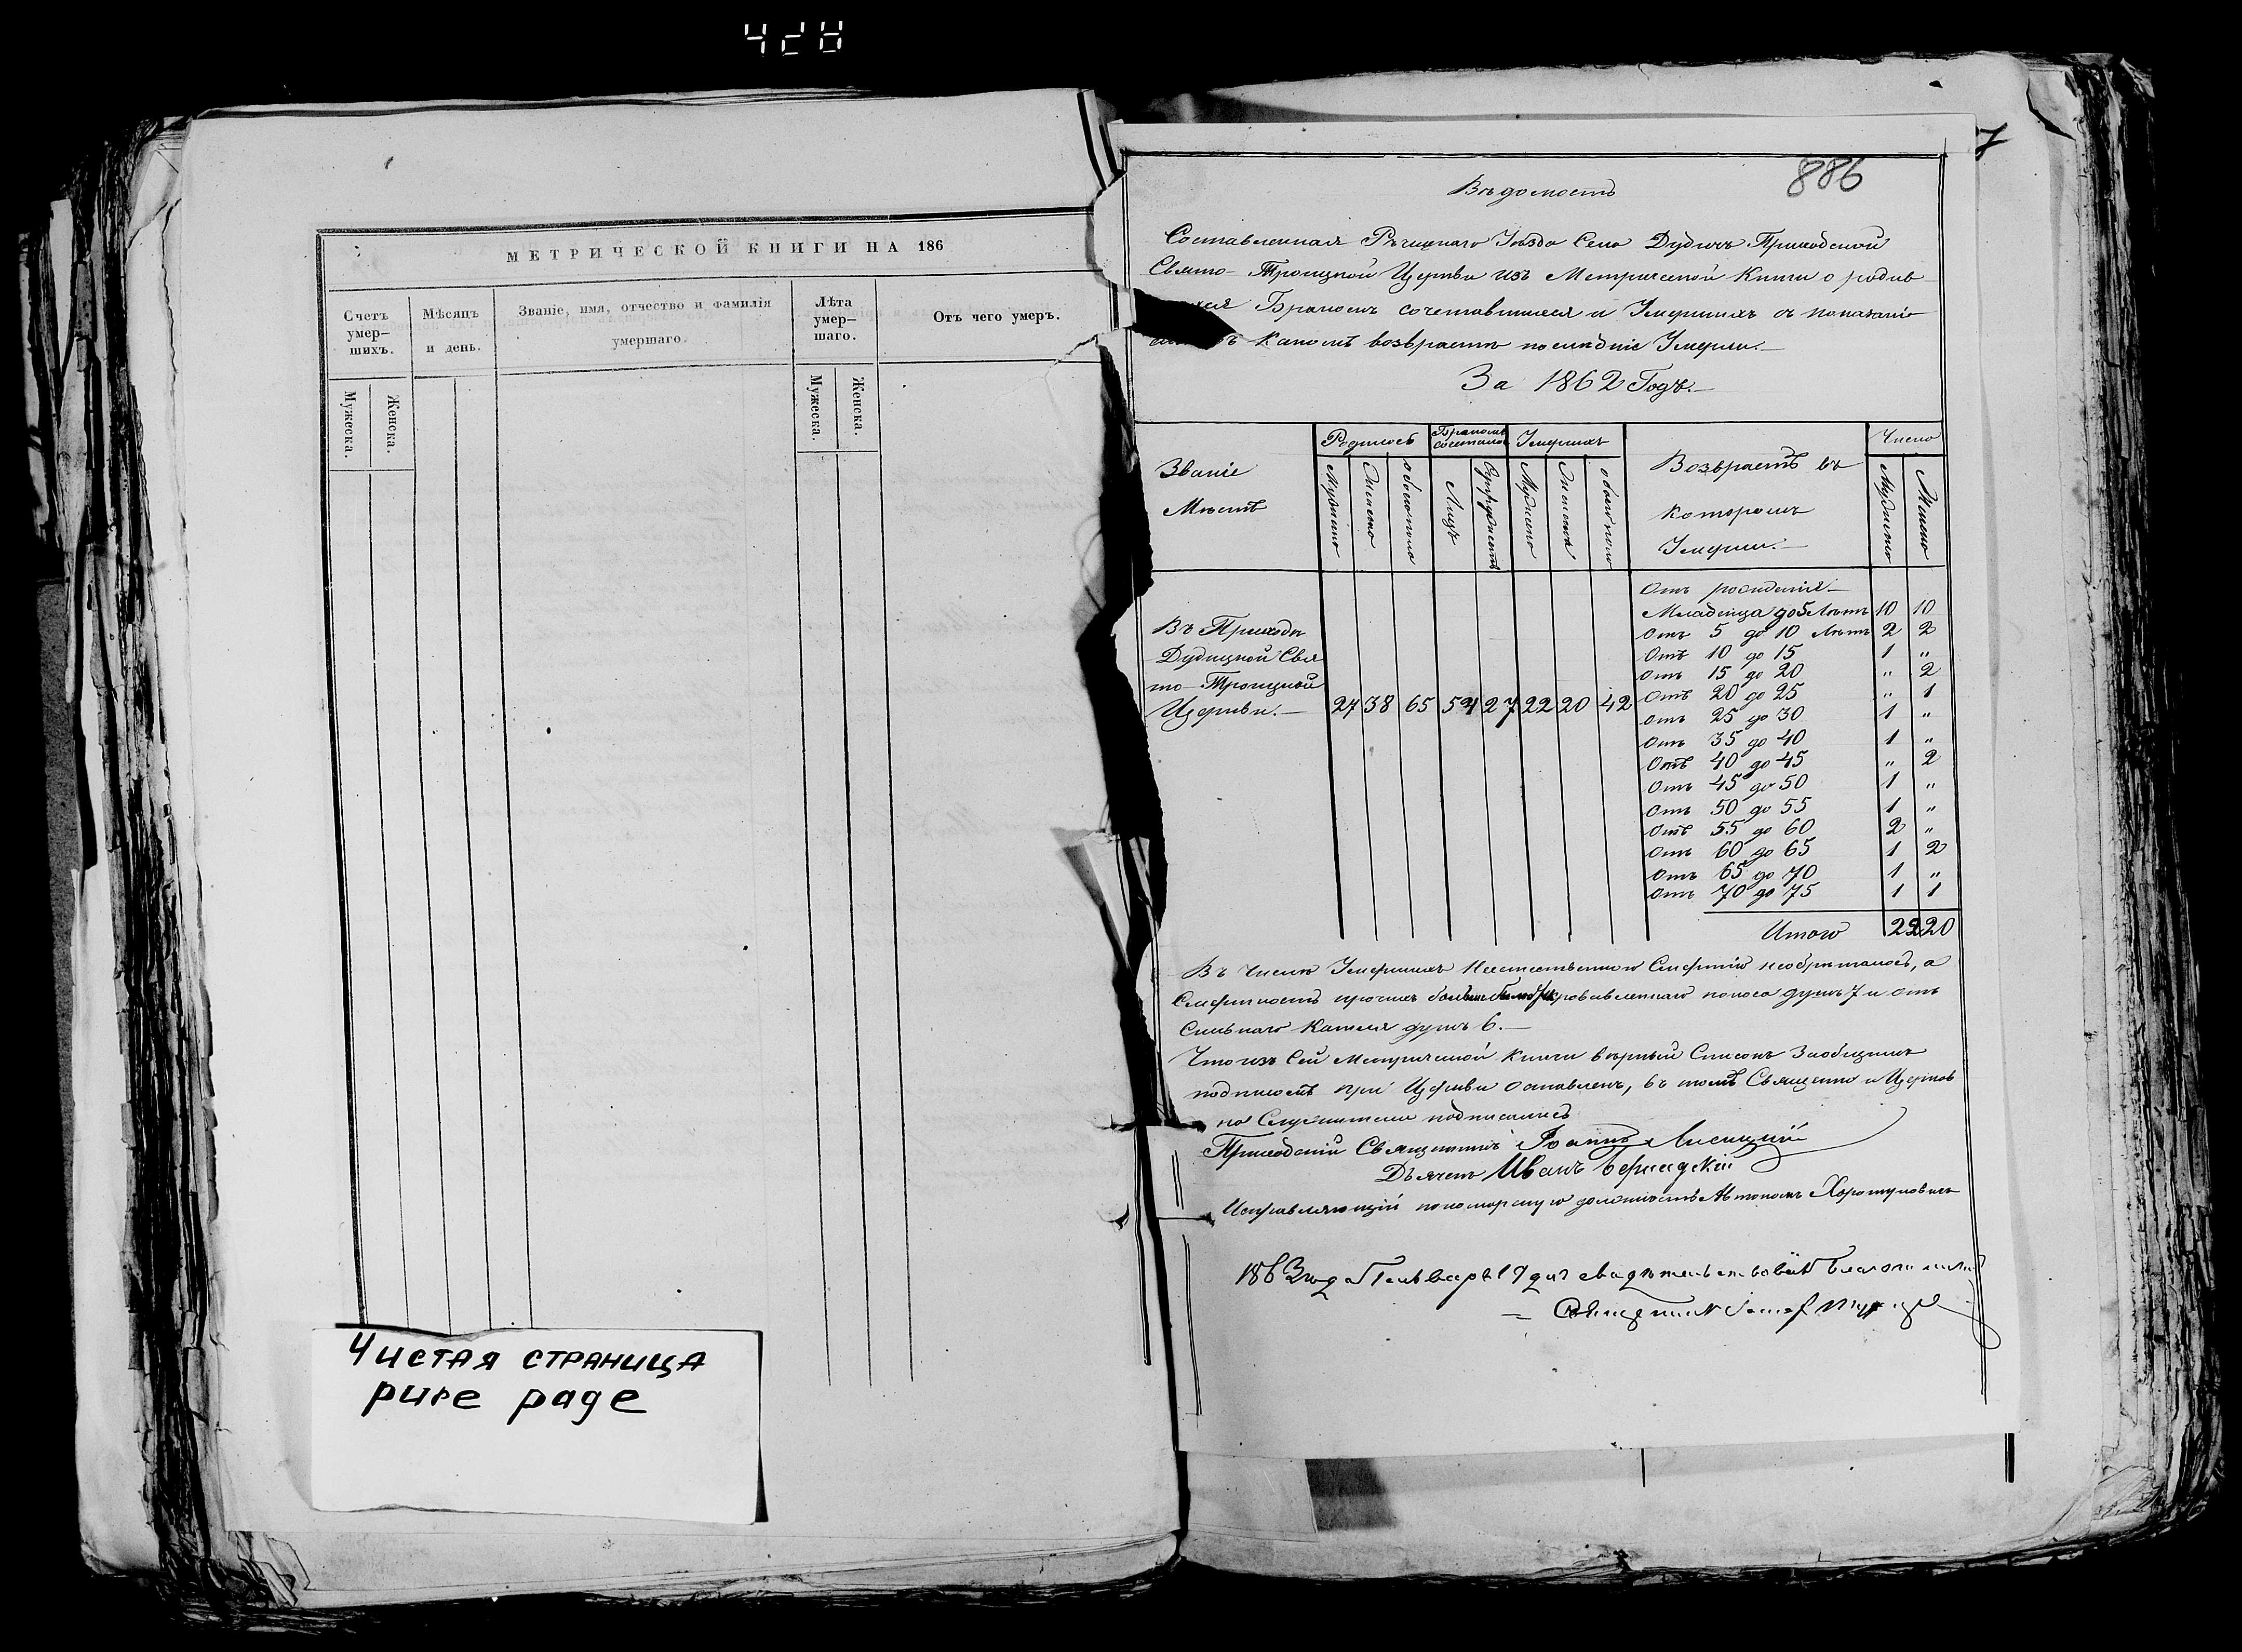 МЕТРИЧЕСКОЙ КНИГИ НА 186
Счетъ умер-шихъ.
Мѣсяцъ и день.
Званіе, имя, отчество и фамилія умершаго.
Лѣта умер-шаго.
Отъ чего умеръ.
Мужеска.
Женска.
Мужеска.
Женска.
Чистая страница
pure page
886
7
Вѣдомость
Составленная Рѣчицкаго Уѣзда Села Дудичъ Приходской
Свято-Троицкой Церкви изъ Метрической Книги о родив
Бракомъ сочетавшихся и Умершихъ съ показаніе
какомъ возврастѣ послѣдніе Умерли.—
За 1862 Годъ.—
Званіе
Мѣстъ
Родилось
Бракомъ
сочеталось
Умершихъ
Возврастъ въ
которомъ
Умерли.—
Число
Мужеско
Женско
обоего пола
Лицъ
Супружествъ
Мужеско
Женска
обоего пола
Мужеско
Женско
Въ Приходѣ
Дудицкой Свя
то-Троицкой
Церкви.— 27 38 65 54 27 22 20 42
Отъ рожденія—
Младенца до 5 Лѣтъ 10 10
Отъ 5 до 10 Лѣтъ 2 2
Отъ 10 до 15 1 „
Отъ 15 до 20 „ 2
Отъ 20 до 25 „ 1
Отъ 25 до 30 1 „
Отъ 35 до 40 1 „
Отъ 40 до 45 „ 2
Отъ 45 до 50 1 „
Отъ 50 до 55 1 „
Отъ 55 до 60 2 „
Отъ 60 до 65 1 2
Отъ 65 до 70 1 „
Отъ 70 до 75 1 1
Итого 22 20
Въ Числѣ Умершихъ Неестественною Смертію необрѣталось, а
Смертность прочихъ кровавленнаго поноса душъ 7 и отъ
Сильнаго Кашля душъ 6.—
Что изъ Сей Метрической книги вѣрный Списокъ За общимъ
подписомъ при Церкви оставленъ, въ томъ Священно и Церков
но Служители подписались
Приходскій Священникъ Іоаннъ Лисицкій
Дьячекъ Иванъ Бернадскій
Исправляющій пономарскую должность Автономъ Хоротуновичъ
1863 год Генваря 19 дня свидѣтельствовалъ Благочинный
Священникъ